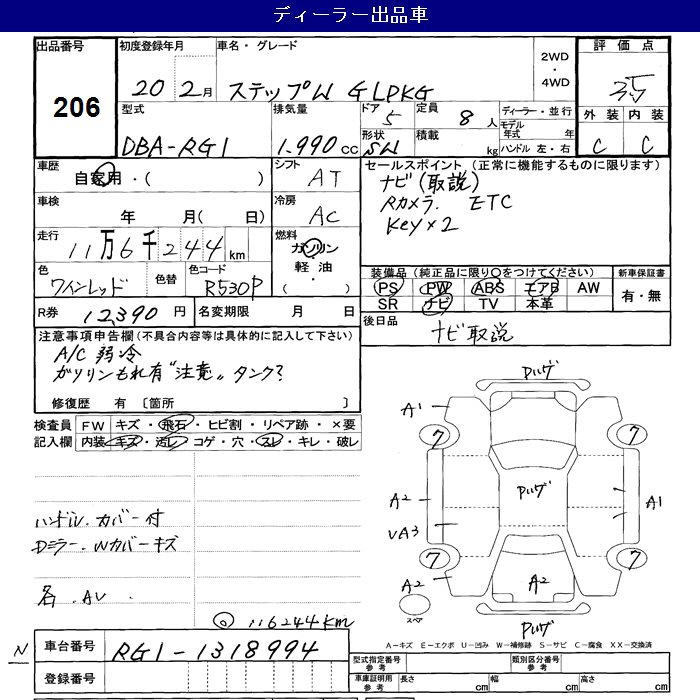 ディーラー出品車
出品番号 206
初度登録年月 20 2月
車名・グレード ステップW GLPKG
2WD・4WD
評価点 3.5
型式 DBA-RG1
排気量 1.990 cc
ドア 5
形状 SW
定員 8人
積載 kg
ディーラー・並行
モデル年式 年
ハンドル 左・右
外装 C
内装 C
車歴 自家用・( )
シフト AT
セールスポイント (正常に機能するものに限ります)
ナビ(取説)
Rカメラ. ETC
Key×2
車検 年 月( 日)
冷房 AC
走行 11万6千244km
燃料 ガソリン・軽油・( )
色 ワインレッド
色替
色コード R530P
装備品 (純正品に限り○をつけてください)
新車保証書
PS PW ABS エアB AW
SR ナビ TV 本革
有・無
R券 12,390円
名変期限 月 日
後日品 ナビ取説
注意事項申告欄 (不具合内容等は具体的に記入して下さい)
A/C 弱冷
ガソリンもれ有 "注意" タンク?
修復歴 有 〔箇所 〕
検査員記入欄
FW キズ・飛石・ヒビ割・リペア跡・×要
内装 キズ・汚レ・コゲ・穴・スレ・キレ・破レ
ハンドル.カバー付
Dミラー.Wカバーキズ
各.AV
◎ 116244km
Pハゲ
A1
7 7
Pハゲ
A2 A1
UA3
7 7
A2 A2
スペア
Pハゲ
A-キズ E-エクボ U-凹み W-補修跡 S-サビ C-腐食 XX-交換済
N
車台番号 RG1-1318994
登録番号
型式指定番号 参考
類別区分番号 参考
車庫証明用 参考
長さ cm 幅 cm 高さ cm